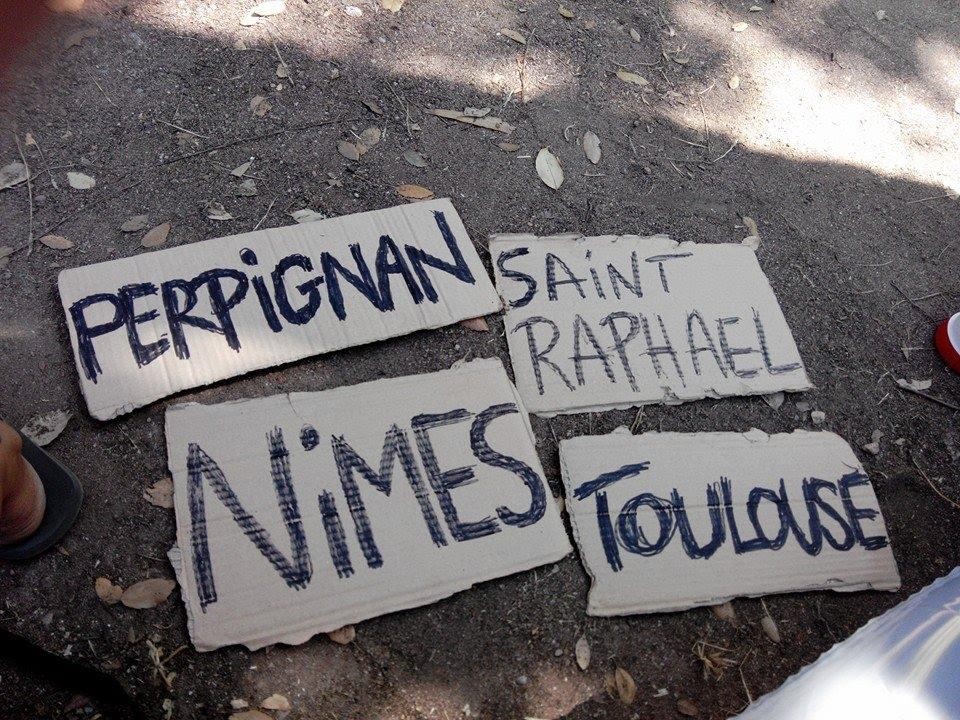 PERPiGNAN
SAiNT
RAPHAEL
NiMES
TOULOUSE